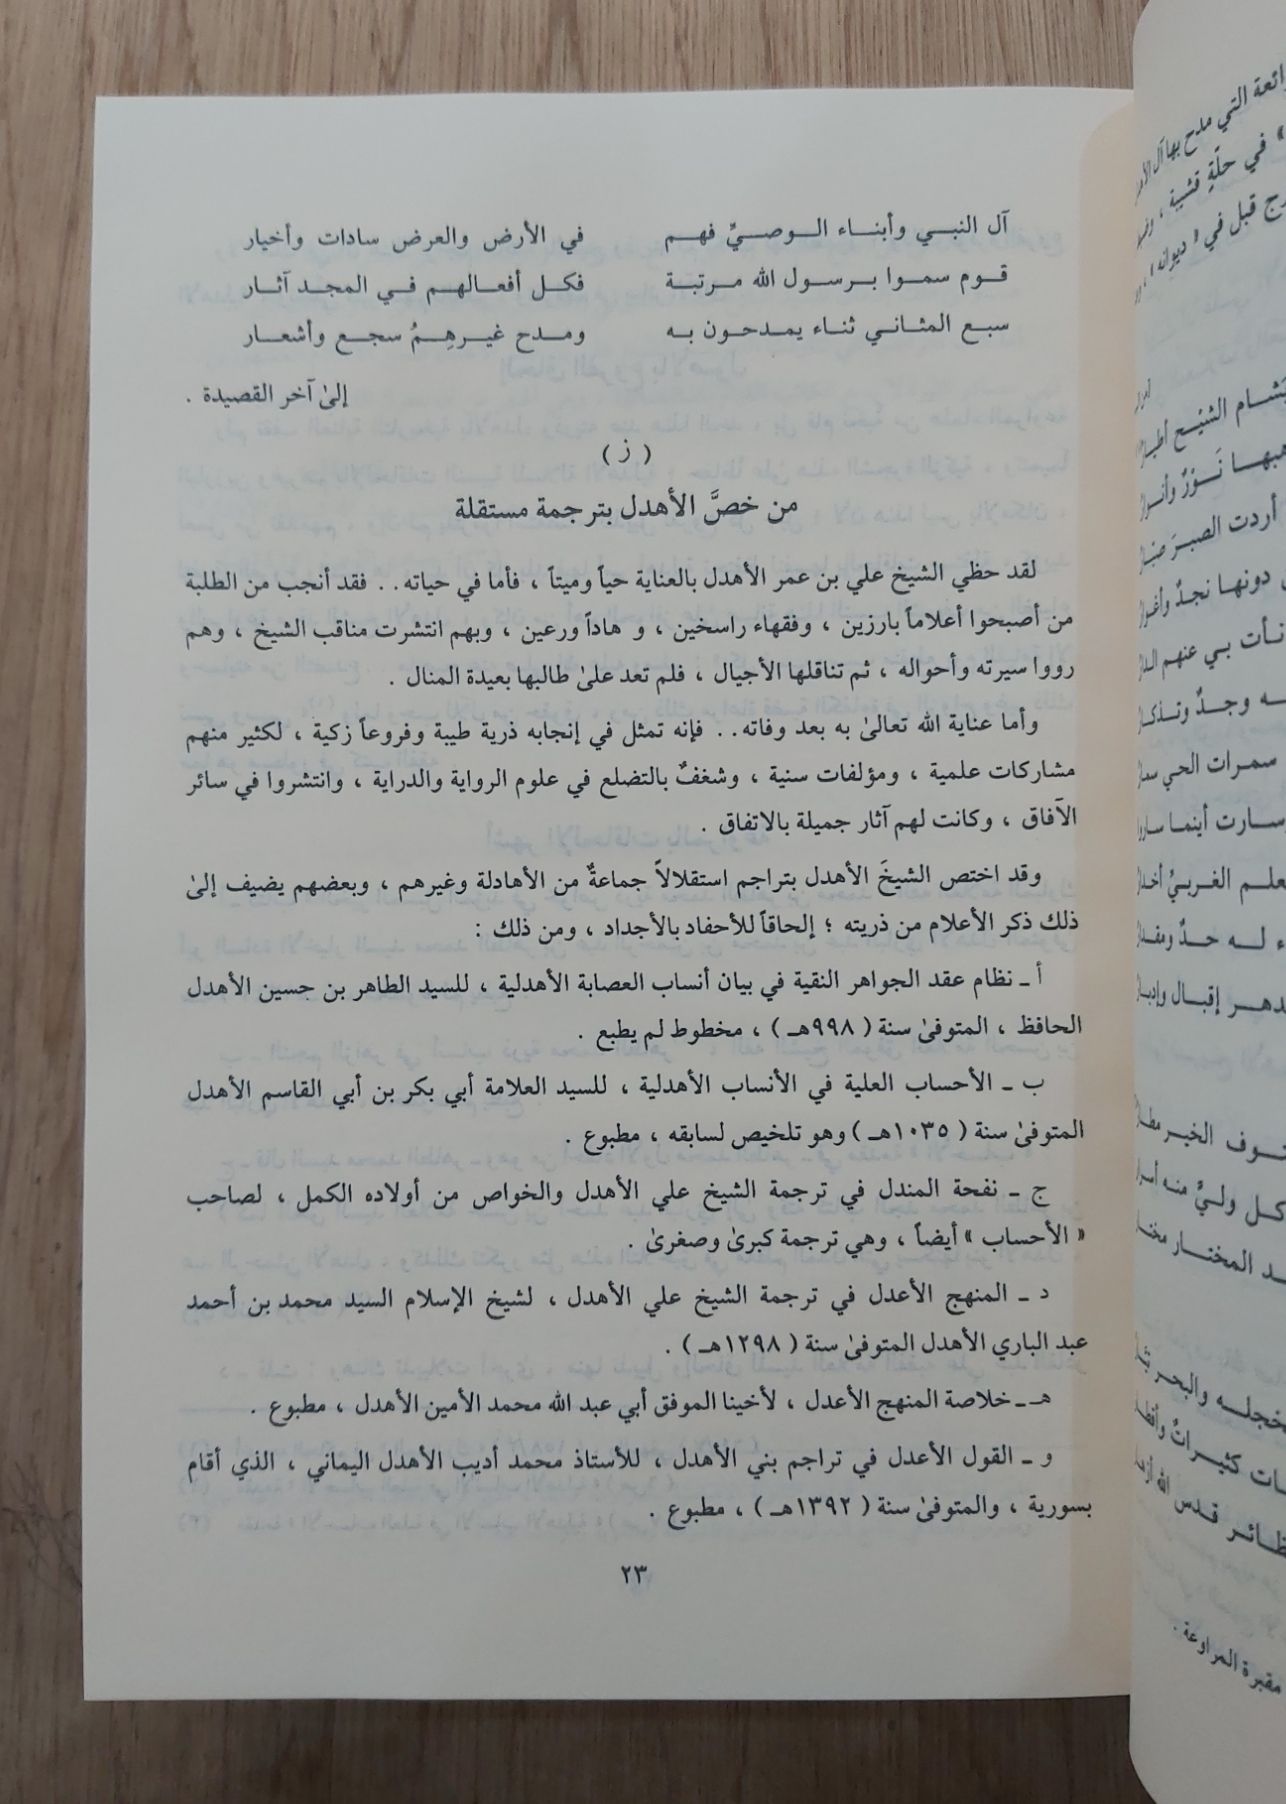 آل النبـي وأبنـاء الـوصـيِّ فهـم في الأرض والعرض سادات وأخيار
قـوم سمـوا بـرسـول الله مـرتبـة فكـل أفعـالهـم فـي المجـد آثـار
سبـع المثـانـي ثناء يمـدحـون به ومـدح غيـرهِـمُ سجـع وأشعـار
إلىٰ آخر القصيدة .
( ز )
من خصَّ الأهدل بترجمة مستقلة
لقد حظي الشيخ علي بن عمر الأهدل بالعناية حياً وميتاً ، فأما في حياته . . فقد أنجب من الطلبة
من أصبحوا أعلاماً بارزين ، وفقهاء راسخين ، و هاداً ورعين ، وبهم انتشرت مناقب الشيخ ، وهم
رووا سيرته وأحواله ، ثم تناقلها الأجيال ، فلم تعد علىٰ طالبها بعيدة المنال .
وأما عناية الله تعالىٰ به بعد وفاته . . فإنه تمثل في إنجابه ذرية طيبة وفروعاً زكية ، لكثير منهم
مشاركات علمية ، ومؤلفات سنية ، وشغفٌ بالتضلع في علوم الرواية والدراية ، وانتشروا في سائر
الآفاق ، وكانت لهم آثار جميلة بالاتفاق .
وقد اختص الشيخَ الأهدل بتراجم استقلالاً جماعةٌ من الأهادلة وغيرهم ، وبعضهم يضيف إلىٰ
ذلك ذكر الأعلام من ذريته ؛ إلحاقاً للأحفاد بالأجداد ، ومن ذلك :
أ ـ نظام عقد الجواهر النقية في بيان أنساب العصابة الأهدلية ، للسيد الطاهر بن حسين الأهدل
الحافظ ، المتوفىٰ سنة ( ٩٩٨هـ ) ، مخطوط لم يطبع .
ب ـ الأحساب العلية في الأنساب الأهدلية ، للسيد العلامة أبي بكر بن أبي القاسم الأهدل
المتوفىٰ سنة ( ١٠٣٥هـ ) وهو تلخيص لسابقه ، مطبوع .
ج ـ نفحة المندل في ترجمة الشيخ علي الأهدل والخواص من أولاده الكمل ، لصاحب
« الأحساب » أيضاً ، وهي ترجمة كبرىٰ وصغرىٰ .
د ـ المنهج الأعدل في ترجمة الشيخ علي الأهدل ، لشيخ الإسلام السيد محمد بن أحمد
عبد الباري الأهدل المتوفىٰ سنة ( ١٢٩٨هـ ) .
هـ ـ خلاصة المنهج الأعدل ، لأخينا الموفق أبي عبد الله محمد الأمين الأهدل ، مطبوع .
و ـ القول الأعدل في تراجم بني الأهدل ، للأستاذ محمد أديب الأهدل اليماني ، الذي أقام
بسورية ، والمتوفىٰ سنة ( ١٣٩٢هـ ) ، مطبوع .
٢٣